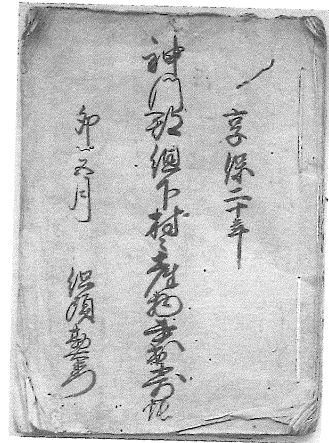 享保二十年
神門郡組下村々産物書出帳
卯ノ五月
組頭